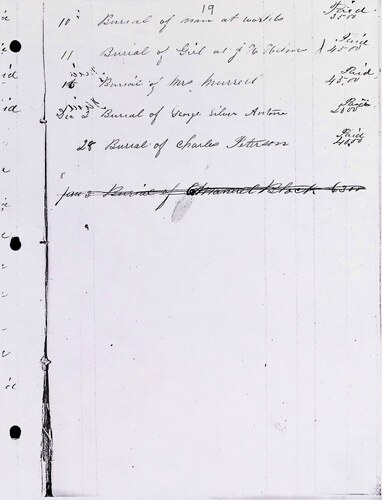 19
10 Burial of man at Paid 35.00
11 Burial of Girl at J H Paid 45.00
15 Burial of Mrs Murrell Paid 45.00
Dec 3 Burial of George Silver Antone Paid
28 Burial of Charles Peterson Paid
Jan 2 Burial of Emanuel Block